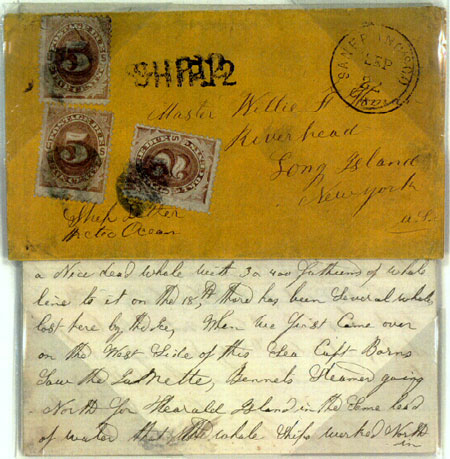 5
SHIP 12
SAN FRANCISCO
SEP
Master Willie F
Riverhead
Long Island
New York
U.S.
5
2
Ship Letter
Arctic Ocean
a Nice dead whale with 3 or 400 fathoms of whale
line to it on the 18th there has been Several whales
lost here by the Ice, When we first Came over
on the West Side of this Sea Capt Barns
Saw the Jeannette, Bennets Steamer going
North for Herald Island in the Same lead
of water that the whale Ships worked North
in